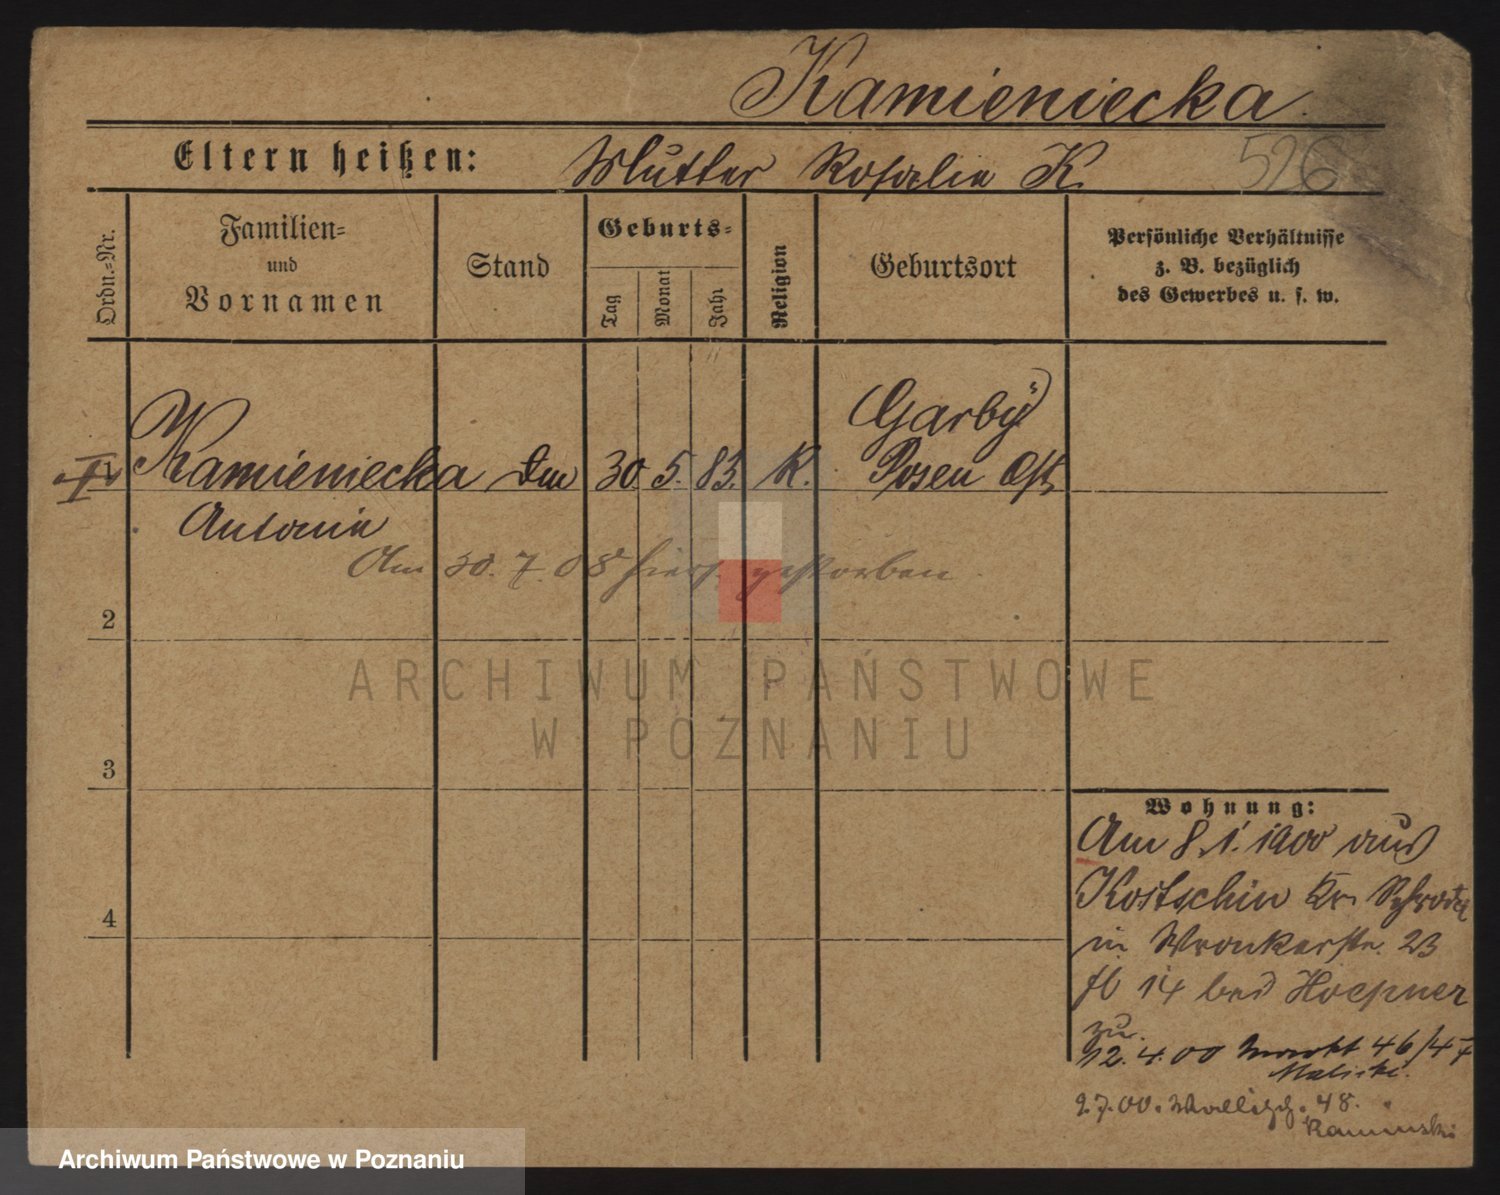 Kamieniecka.
Eltern heißen: Mutter Rosalie K.
526
Ordn.=Nr.
Familien=
und
Vornamen
Stand
Geburts=
Tag
Monat
Jahr
Religion
Geburtsort
Persönliche Verhältnisse
z. B. bezüglich
des Gewerbes u. s. w.
Garby
1 Kamieniecka 30. 5. 83. K. Posen Ost
Antonie
Am 30. 7. 08 hier gestorben.
2
3
4
Wohnung:
Am 8. 1. 1900 aus
Kostschin Kr. Schroda
in Wronkerstr. 23
14 bei Hoepner
12. 4. 00 Markt 46/47
Maliski.
2.7.00. Wallisch. 48.
Kaminski
ARCHIWUM PAŃSTWOWE
W POZNANIU
Archiwum Państwowe w Poznaniu